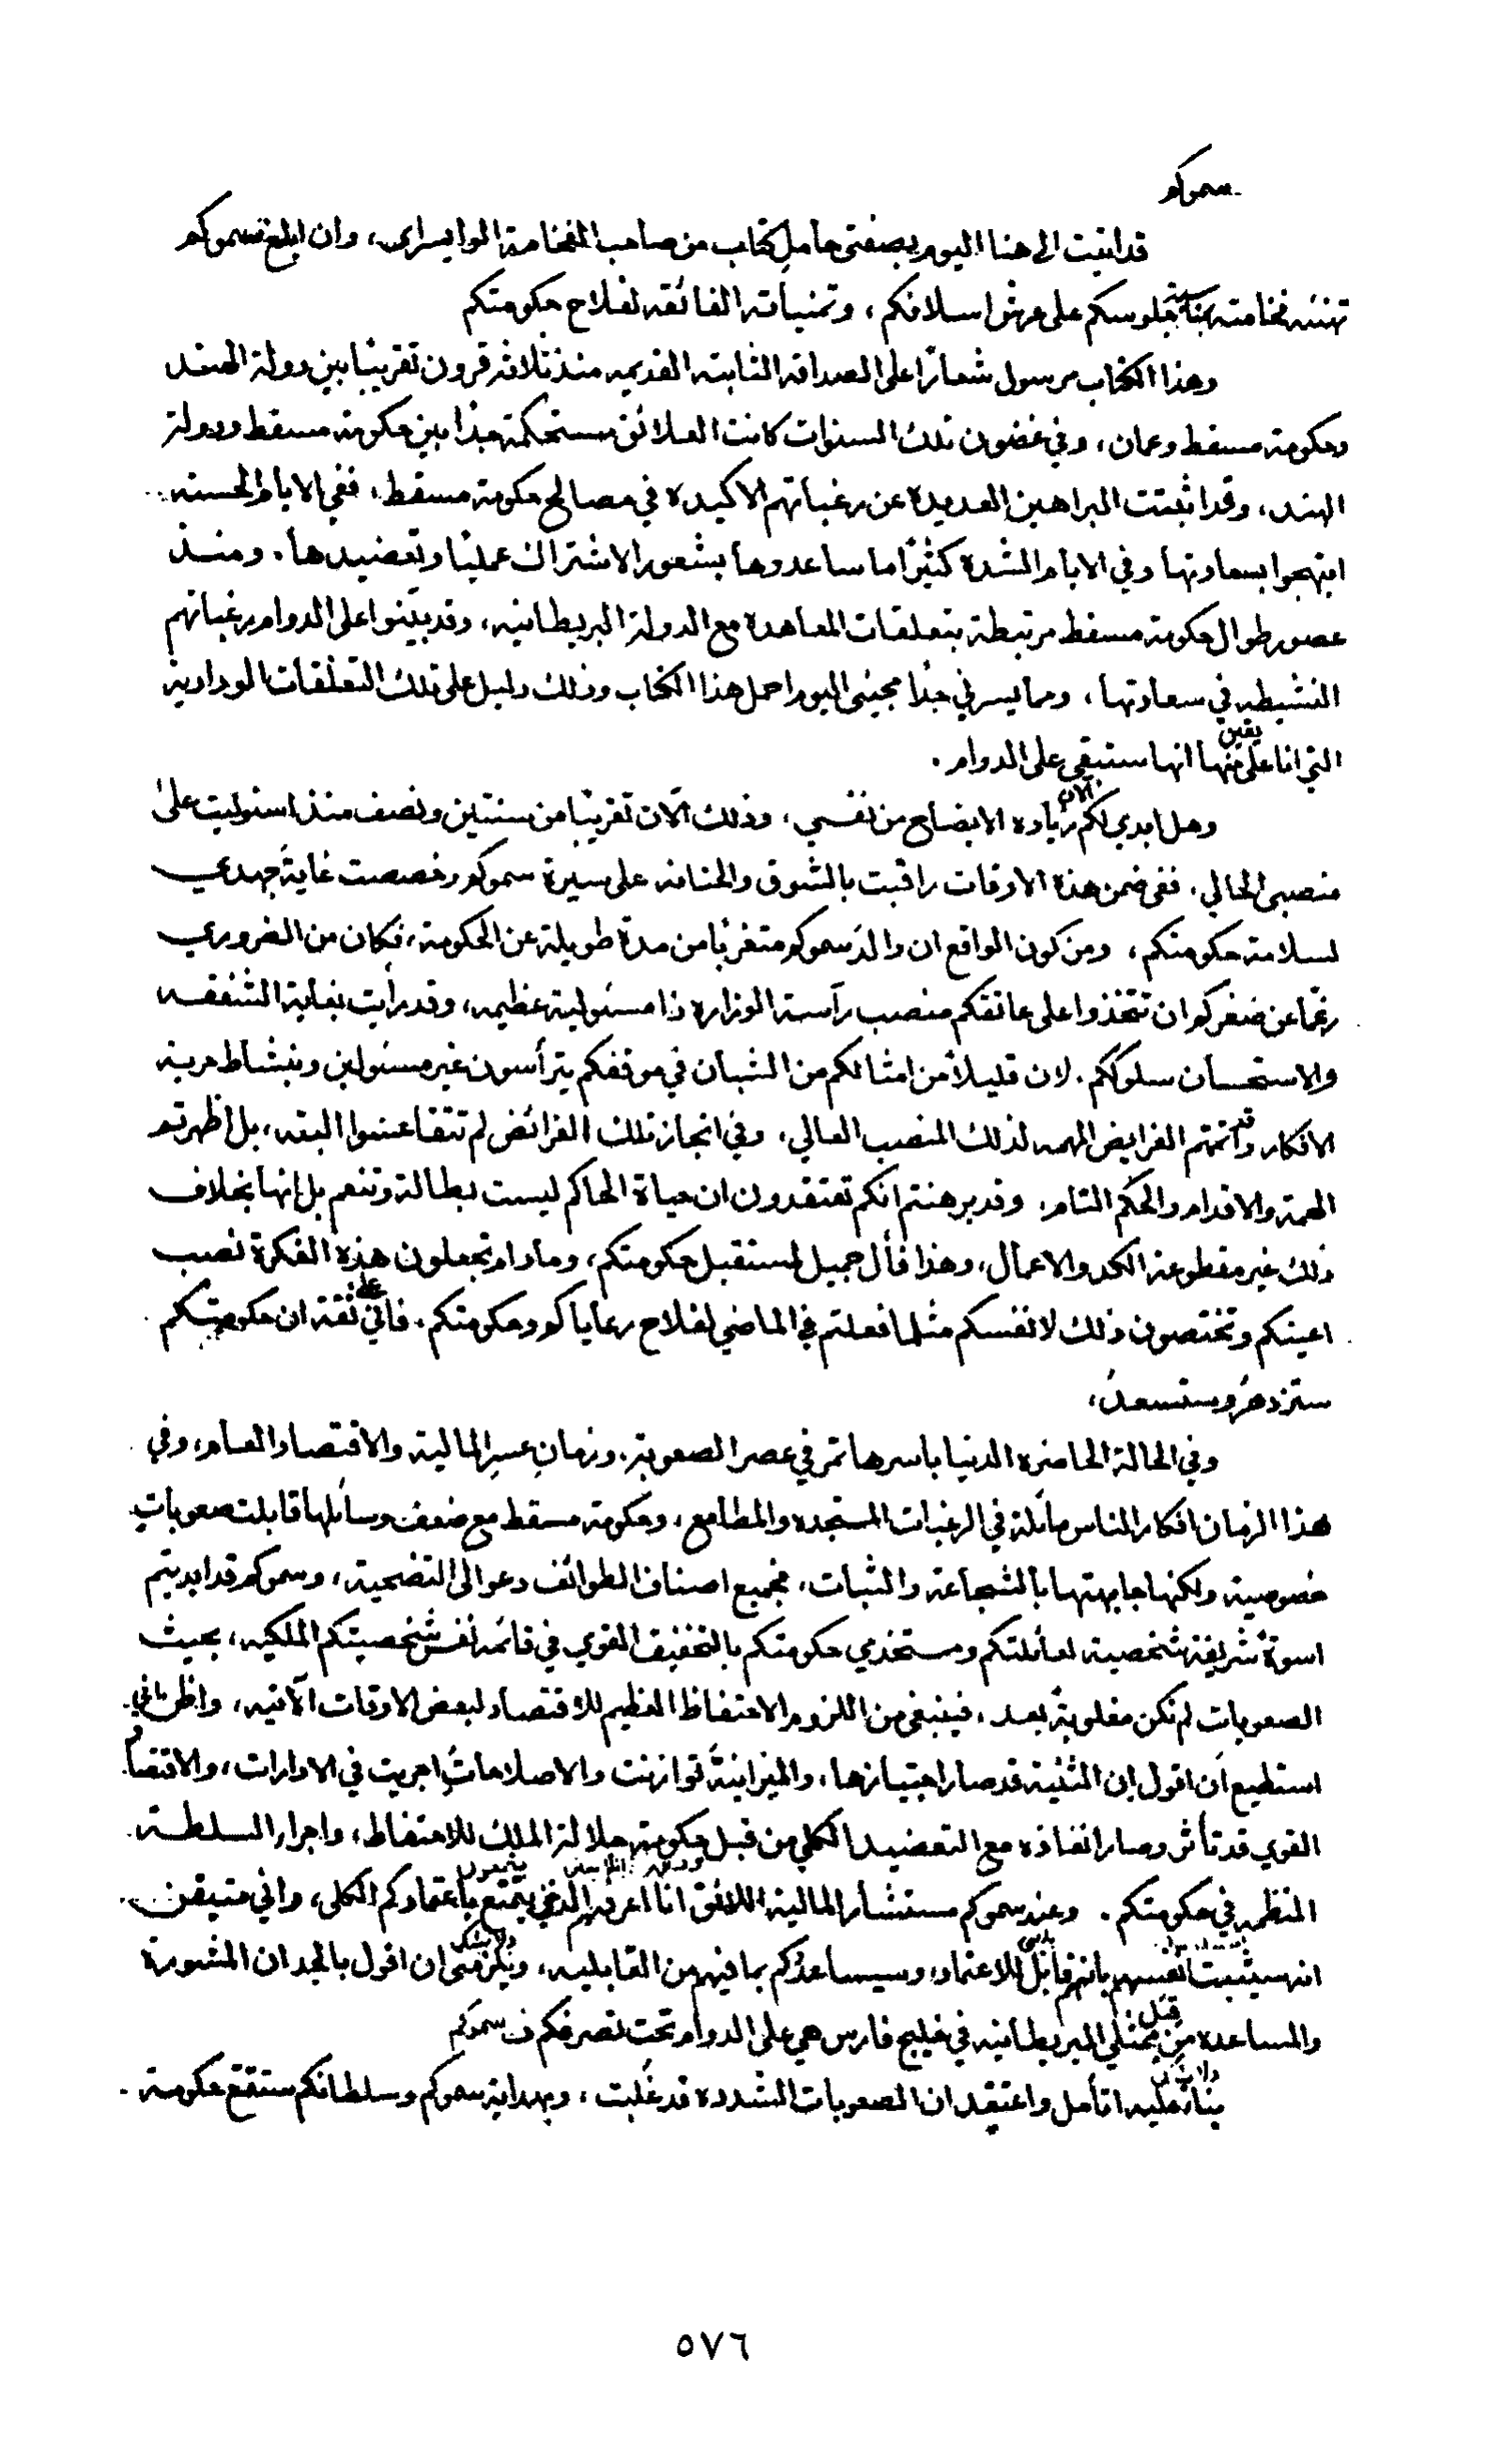 سموكم
قد اتيت الى هنا اليوم بصفتي حامل كتاب من صاحب الفخامة الوايسراى، وان ابلغ سموكم
تهنئه فخامته بمناسبة جلوسكم على عرش اسلافكم، وتمنياته الفائقه لفلاح حكومتكم
وهذا الكتاب مرسول شعارًا على الصداقه الثابته القديمه منذ ثلاثه قرون تقريبًا بين دولة الهند
وحكومة مسقط وعمان، وفي غضون تلك السنوات كانت العلائق مستحكمة جدًا بين حكومة مسقط ودولة
الهند، وقد اثبتت البراهين العديدة عن رغباتهم الاكيده في مصالح حكومة مسقط، ففي الايام الحسنه
ابتهجوا بسعادتها وفي الايام الشدة كثيرًا ما ساعدوها بشعور الاشتراك عمليًا وتعضيدها. ومنذ
عصور طوال حكومة مسقط مرتبطة بتعلقات المعاهدة مع الدولة البريطانيه، وقد بيّنوا على الدوام برغباتهم
النشيطه في سعادتها، ومما يسرني جدًا مجيئى اليوم احمل هذا الكتاب وذلك دليل على تلك التعلقات الودادية
التي انا على يقين منها انها ستبقى على الدوام.
وهل ابدي لكم الآن زياده الايضاح من نفسي، وذلك الآن تقريبًا من سنتين ونصف منذ استوليت على
منصبى الحالي، ففى ضمن هذه الاوقات راقبت بالشوق والمتانه على سيرة سموكم وخصصت غاية جهدي
لسلامة حكومتكم، ومن كون الواقع ان والد سموكم متغربًا من مدة طويلة عن الحكومة، فكان من الضروري
رغمًا عن صغركم ان تتخذوا على عاتقكم منصب رآسة الوزاره ذا مسئولية عظيمه، وقد رأيت بغاية الشفقه
والاستحسان سلوككم. لان قليلاً من امثالكم من الشبان في موقفكم يترأسون غير مسئولين وبنشاط حرية
الافكار، وقد اتممتم الفرايض المهمه لذلك المنصب العالي، وفي انجاز تلك الفرائض لم تتقاعسوا البته، بل اظهرتم
الهمة والاقدام والحكم التام، وقد برهنتم انكم تعتقدون ان حياة الحاكم ليست بطالة وتنعم بل إنها بخلاف
ذلك غير مقطوعة الكد والاعمال، وهذا فأل جميل لمستقبل حكومتكم، وما دام تجعلون هذه الفكرة نصب
اعينكم وتختصون ذلك لانفسكم مثلما فعلتم في الماضي لفلاح رعاياكم وحكومتكم. فأني على ثقة ان حكومتكم
ستزدهرُ وستسعدُ،
وفي الحالة الحاضره الدنيا باسرها تمر في عصر الصعوبة. وزمانِ عسرِ المالية والاقتصاد العام، وفي
هذا الزمان افكار الناس مائلة في الرغبات المستجده والمطامع، وحكومة مسقط مع ضعف وسائلها قابلت صعوباتٍ
خصوصية ولكنها جابهتها بالشجاعة والثبات، فجميع اصناف الطوائف دعوا الى التضحية، وسموكم قد ابديتم
اسوةً شريفة شخصية لعائلتكم ومستخدمي حكومتكم بالتخفيف القوي في قائمة نفس شخصيتكم الملكيه، بحيث
الصعوبات لم تكن مغلوبةً بعد، فينبغى من اللزوم الاحتفاظ العظيم للاقتصاد لبعض الاوقات الآتيه، واظن باني
استطيع أن اقول إن الثنيّة قد صار اجتيازها، والميزانيةُ توازنت والاصلاحاتُ اجريت في الادارات، والاقتصاد
القوي قد تأثر وصار انفاذه مع التعضيد الكلي من قبل حكومة جلالة الملك للاحتفاظ، واجرار السلطة
المنظمه في حكومتكم. وعند سموكم مستشار المالية اللائق انا اعرفهم الذي يتمتع يتمتعون باعتمادكم الكلى، واني متيقن
انه سيثبت نفسهم بانهم قابل للاعتماد، وسيساعدُكم بما فيهم من القابليه، ولا يمكن ويلزمنى ان اقول بالجد ان المشورة
والمساعده من قبل ممثلي البريطانيه في خليج فارس هي على الدوام تحت تصرفكم سموكم
بناءً عليه اتأمل واعتقد ان الصعوبات الشدده قد غُلبت، وبهداية سموكم وسلطانكم ستقع حكومة
٥٧٦